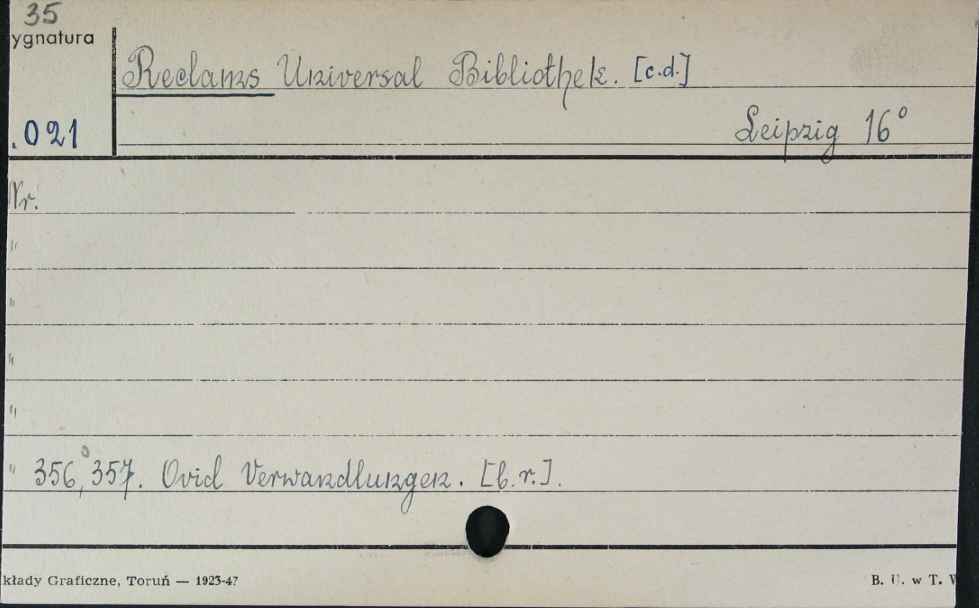 35
ygnatura
Reclams Universal Bibliothek. [c.d.]
.021
Leipzig 16°
Nr.
"
"
"
"
" 356, 357. Ovid Verwandlungen. [b.r.].
kłady Graficzne, Toruń — 1923-47
B. U. w T.